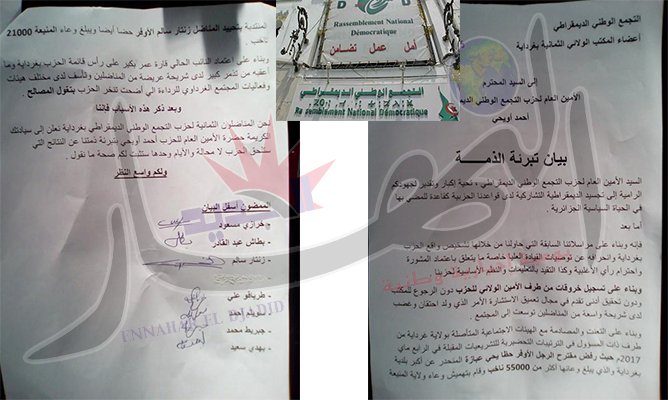 التجمع الوطني الديمقراطي
أعضاء المكتب الولائي الثمانية بغرداية
إلى السيد المحترم
الأمين العام لحزب التجمع الوطني الديمقراطي
أحمد أويحي
بيان تبرئة الذمة
السيد الأمين العام لحزب التجمع الوطني الديمقراطي ، تحية إكبار وتقدير لجهودكم
الرامية إلى تجسيد الديمقراطية التشاركية لدى قواعدنا الحزبية كقاعدة للمضي بها
في الحياة السياسية الجزائرية .
أما بعد
فإنه وبناء على مراسلاتنا السابقة التي حاولنا من خلالها تشخيص واقع الحزب
بغرداية وانحرافه عن توصيات القيادة العليا خاصة ما يتعلق باعتماد المشورة
واحترام رأي الأغلبية وكذا التقيد بالتعليمات والنظم الأساسية لحزبنا
وبناء على تسجيل خروقات من طرف الأمين الولائي للحزب دون الرجوع للمكتب
ودون تحقيق أدنى تقدم في مجال تعميق الاستشارة الأمر الذي ولد احتقان وغضب
لدى شريحة واسعة من المناضلين توسعت إلى المجتمع .
وبناء على التعنت والمصادمة مع الهيئات الاجتماعية المتأصلة بولاية غرداية من
طرف ذات المسؤول في الترتيبات التحضيرية للتشريعيات المقبلة في الرابع ماي
2017م حيث رفض مقترح الرجل الأوفر حظا يحي عبازة المنحدر عن أكبر بلدية
بغرداية والذي يبلغ وعائها أكثر من 55000 ناخب وقام بتهميش وعاء ولاية المنيعة
المنتدبة بتحييد المناضل زنتار سالم الأوفر حضا أيضا ويبلغ وعاء المنيعة 21000
ناخب
وبناء على اعتماد النائب الحالي قارة عمر بكير على رأس قائمة الحزب بغرداية وما
أعقبه من تذمر كبير لدى شريحة عريضة من المناضلين وتأسف لدى مختلف هيئات
وفعاليات المجتمع الغرداوي للرداءة التي أضحت تنخر الحزب بتغول المصالح .
وبعد ذكر هذه الأسباب فإننا
نحن المناضلين الثمانية لحزب التجمع الوطني الديمقراطي بغرداية نعلن إلى سيادتك
الكريمة حضرة الأمين العام للحزب أحمد أويحي تبرئة ذمتنا عن النتائج التي
ستلحق الحزب لا محالة والأيام وحدها ستثبت لكم صحة ما نقول .
ولكم واسع النظر
الممضون أسفل البيان
- خرازي مسعود
- بطاش عبد القادر
- زنتار سالم
- طرباقو علي
- جبريط محمد
- بهدي سعيد
R N D
Rassemblement National
Démocratique
أمل عمل تضامن
التجمع الوطني الديمقراطي
Rassemblement National Démocratique
النهار
ENNAHAR EL DJADID